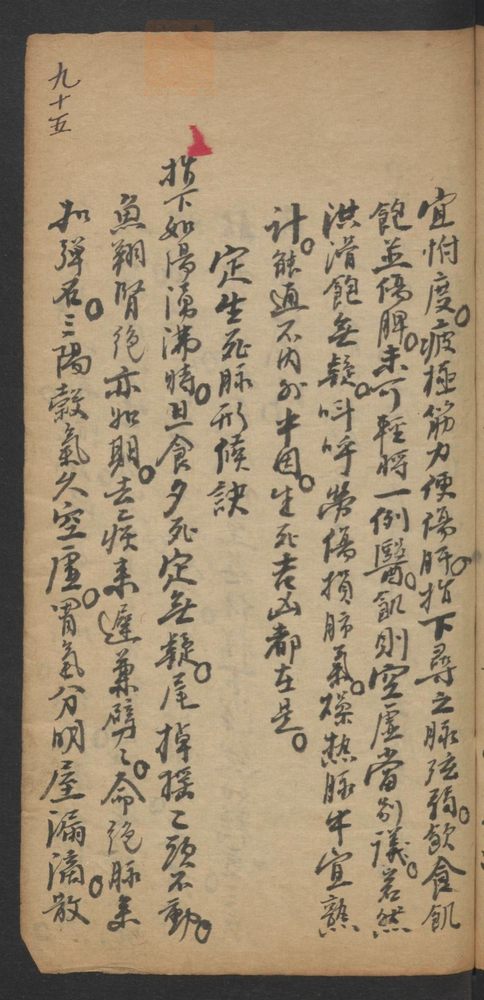 宜忖度。疲極筋力便傷肝。指下尋之脉弦弱。飲食飢
飽並傷脾。未可輕將一例醫。飢則空虛當別議。若然
洪滑飽無疑。叫呼勞傷損肺氣。燥熱脉中宜熟
計。能通不內外中因。生死吉凶都在是。
定生死脉形候訣
指下如湯湧沸時。旦食夕死定無疑。尾掉搖々頭不動。
魚翔腎絕亦如期。去疾來遲兼劈々。命絕脉來
如彈石。三陽穀氣久空虛。胃氣分明屋漏滴。散
九十五